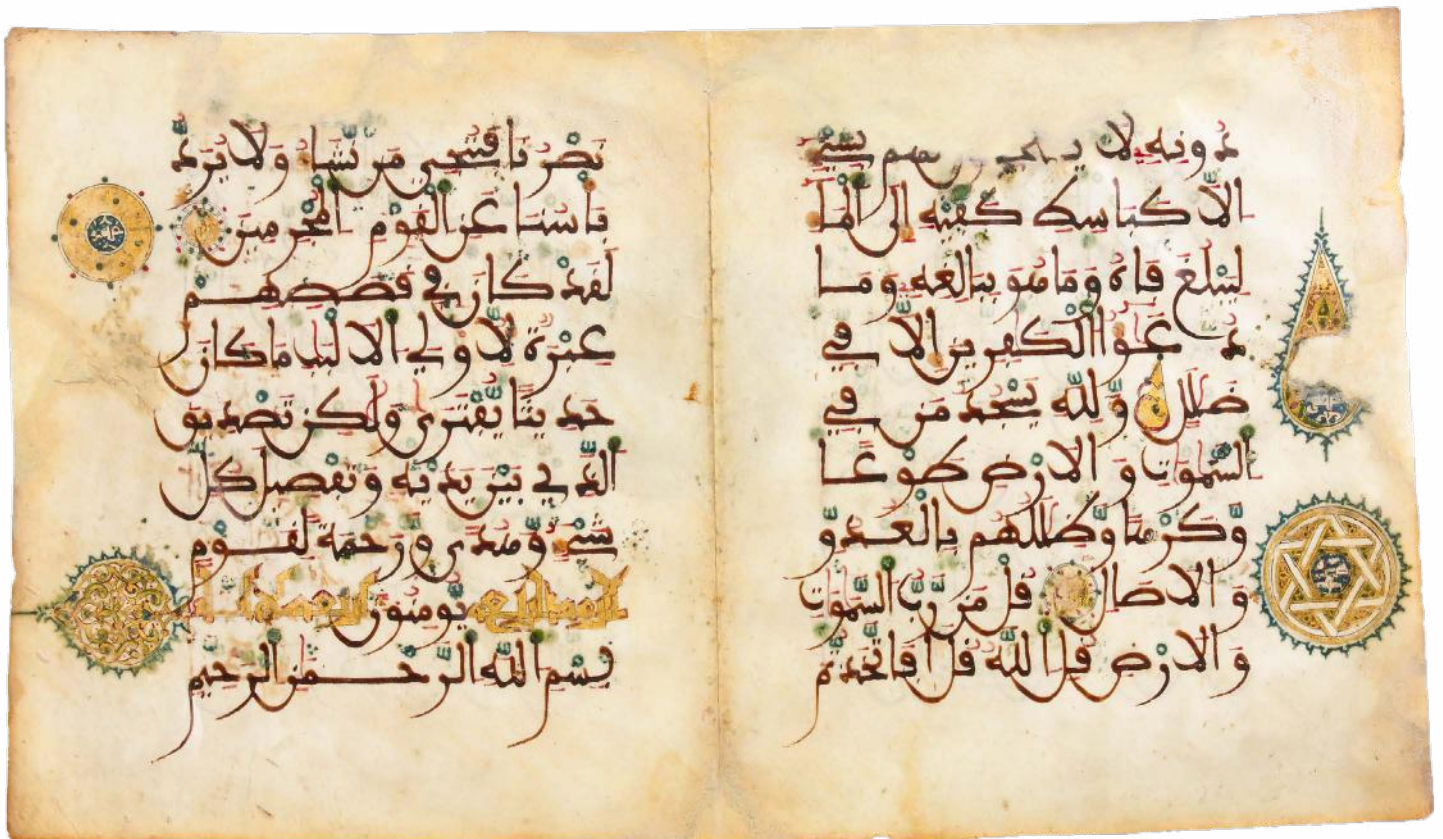 دونه لا بشيء
الا كباسط كفيه الى الما
ليبلغ فاه وما هو ببالغه وما
دعوا الكفرين الا في
ضلل ولله يسجد من في
السموت والارض طوعا
وكرها وظللهم بالغدو
والاصال قل من رب السموت
والارض قل الله قل افاتخذتم
نصرنا فننجي من نشاء ولا يرد
باسنا عن القوم المجرمين
لقد كان في قصصهم
عبرة لاولي الالبب ما كان
حديثا يفترى ولكن تصديق
الذي بين يديه وتفصيل كل
شيء وهدى ورحمة لقوم
يومنون
بسم الله الرحمن الرحيم